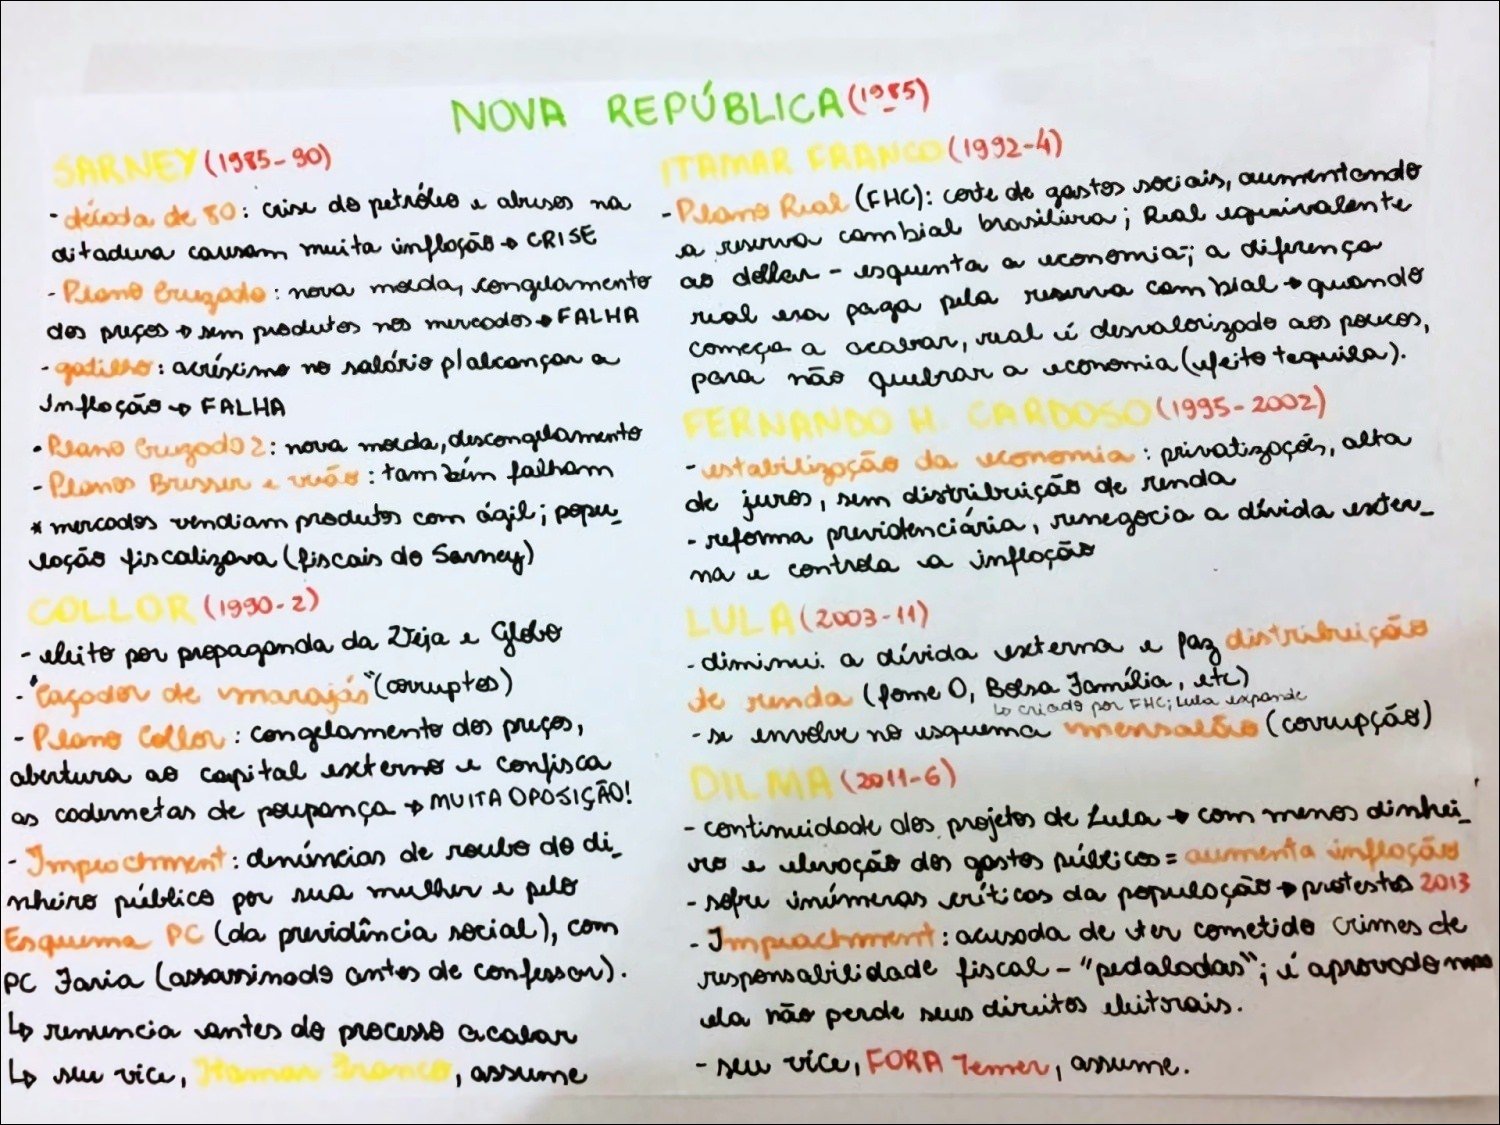 NOVA REPÚBLICA (1985)
SARNEY (1985-90)
- década de 80: crise do petróleo e abusos na
ditadura causam muita inflação → CRISE
- Plano Cruzado: nova moeda, congelamento
dos preços → sem produtos nos mercados → FALHA
- gatilho: acréscimo no salário p/ alcançar a
inflação → FALHA
- Plano Cruzado 2: nova moeda, descongelamento
- Planos Bresser e verão: também falham
* mercados vendiam produtos com ágil; popu_
lação fiscalizava (fiscais do Sarney)
COLLOR (1990-2)
- eleito por propaganda da Veja e Globo
- "Caçador de marajás" (corruptos)
- Plano Collor: congelamento dos preços,
abertura ao capital externo e confisca
as cadernetas de poupança → MUITA OPOSIÇÃO!
- Impeachment: denúncias de roubo do di_
nheiro público por sua mulher e pelo
Esquema PC (da previdência social), com
PC Faria (assassinado antes de confessar).
↳ renuncia antes do processo acabar
↳ seu vice, Itamar Franco, assume
ITAMAR FRANCO (1992-4)
- Plano Real (FHC): corte de gastos sociais, aumentando
a reserva cambial brasileira; Real equivalente
ao dollar - esquenta a economia-; a diferença
real era paga pela reserva cambial → quando
começa a acabar, real é desvalorizado aos poucos,
para não quebrar a economia (efeito tequila).
FERNANDO H. CARDOSO (1995-2002)
- estabilização da economia: privatizações, alta
de juros, sem distribuição de renda
- reforma previdenciária, renegocia a dívida exter_
na e controla a inflação
LULA (2003-11)
- diminui. a dívida externa e faz distribuição
de renda (fome 0, Bolsa Família, etc)
↳ criado por FHC; Lula expande
- se envolve no esquema mensalão (corrupção)
DILMA (2011-6)
- continuidade dos projetos de Lula → com menos dinhei_
ro e elevação dos gastos públicos = aumenta inflação
- sofre inúmeras críticas da população → protestos 2013
- Impeachment: acusada de ter cometido crimes de
responsabilidade fiscal - "pedaladas"; é aprovado mas
ela não perde seus direitos eleitorais.
- seu vice, FORA Temer, assume.